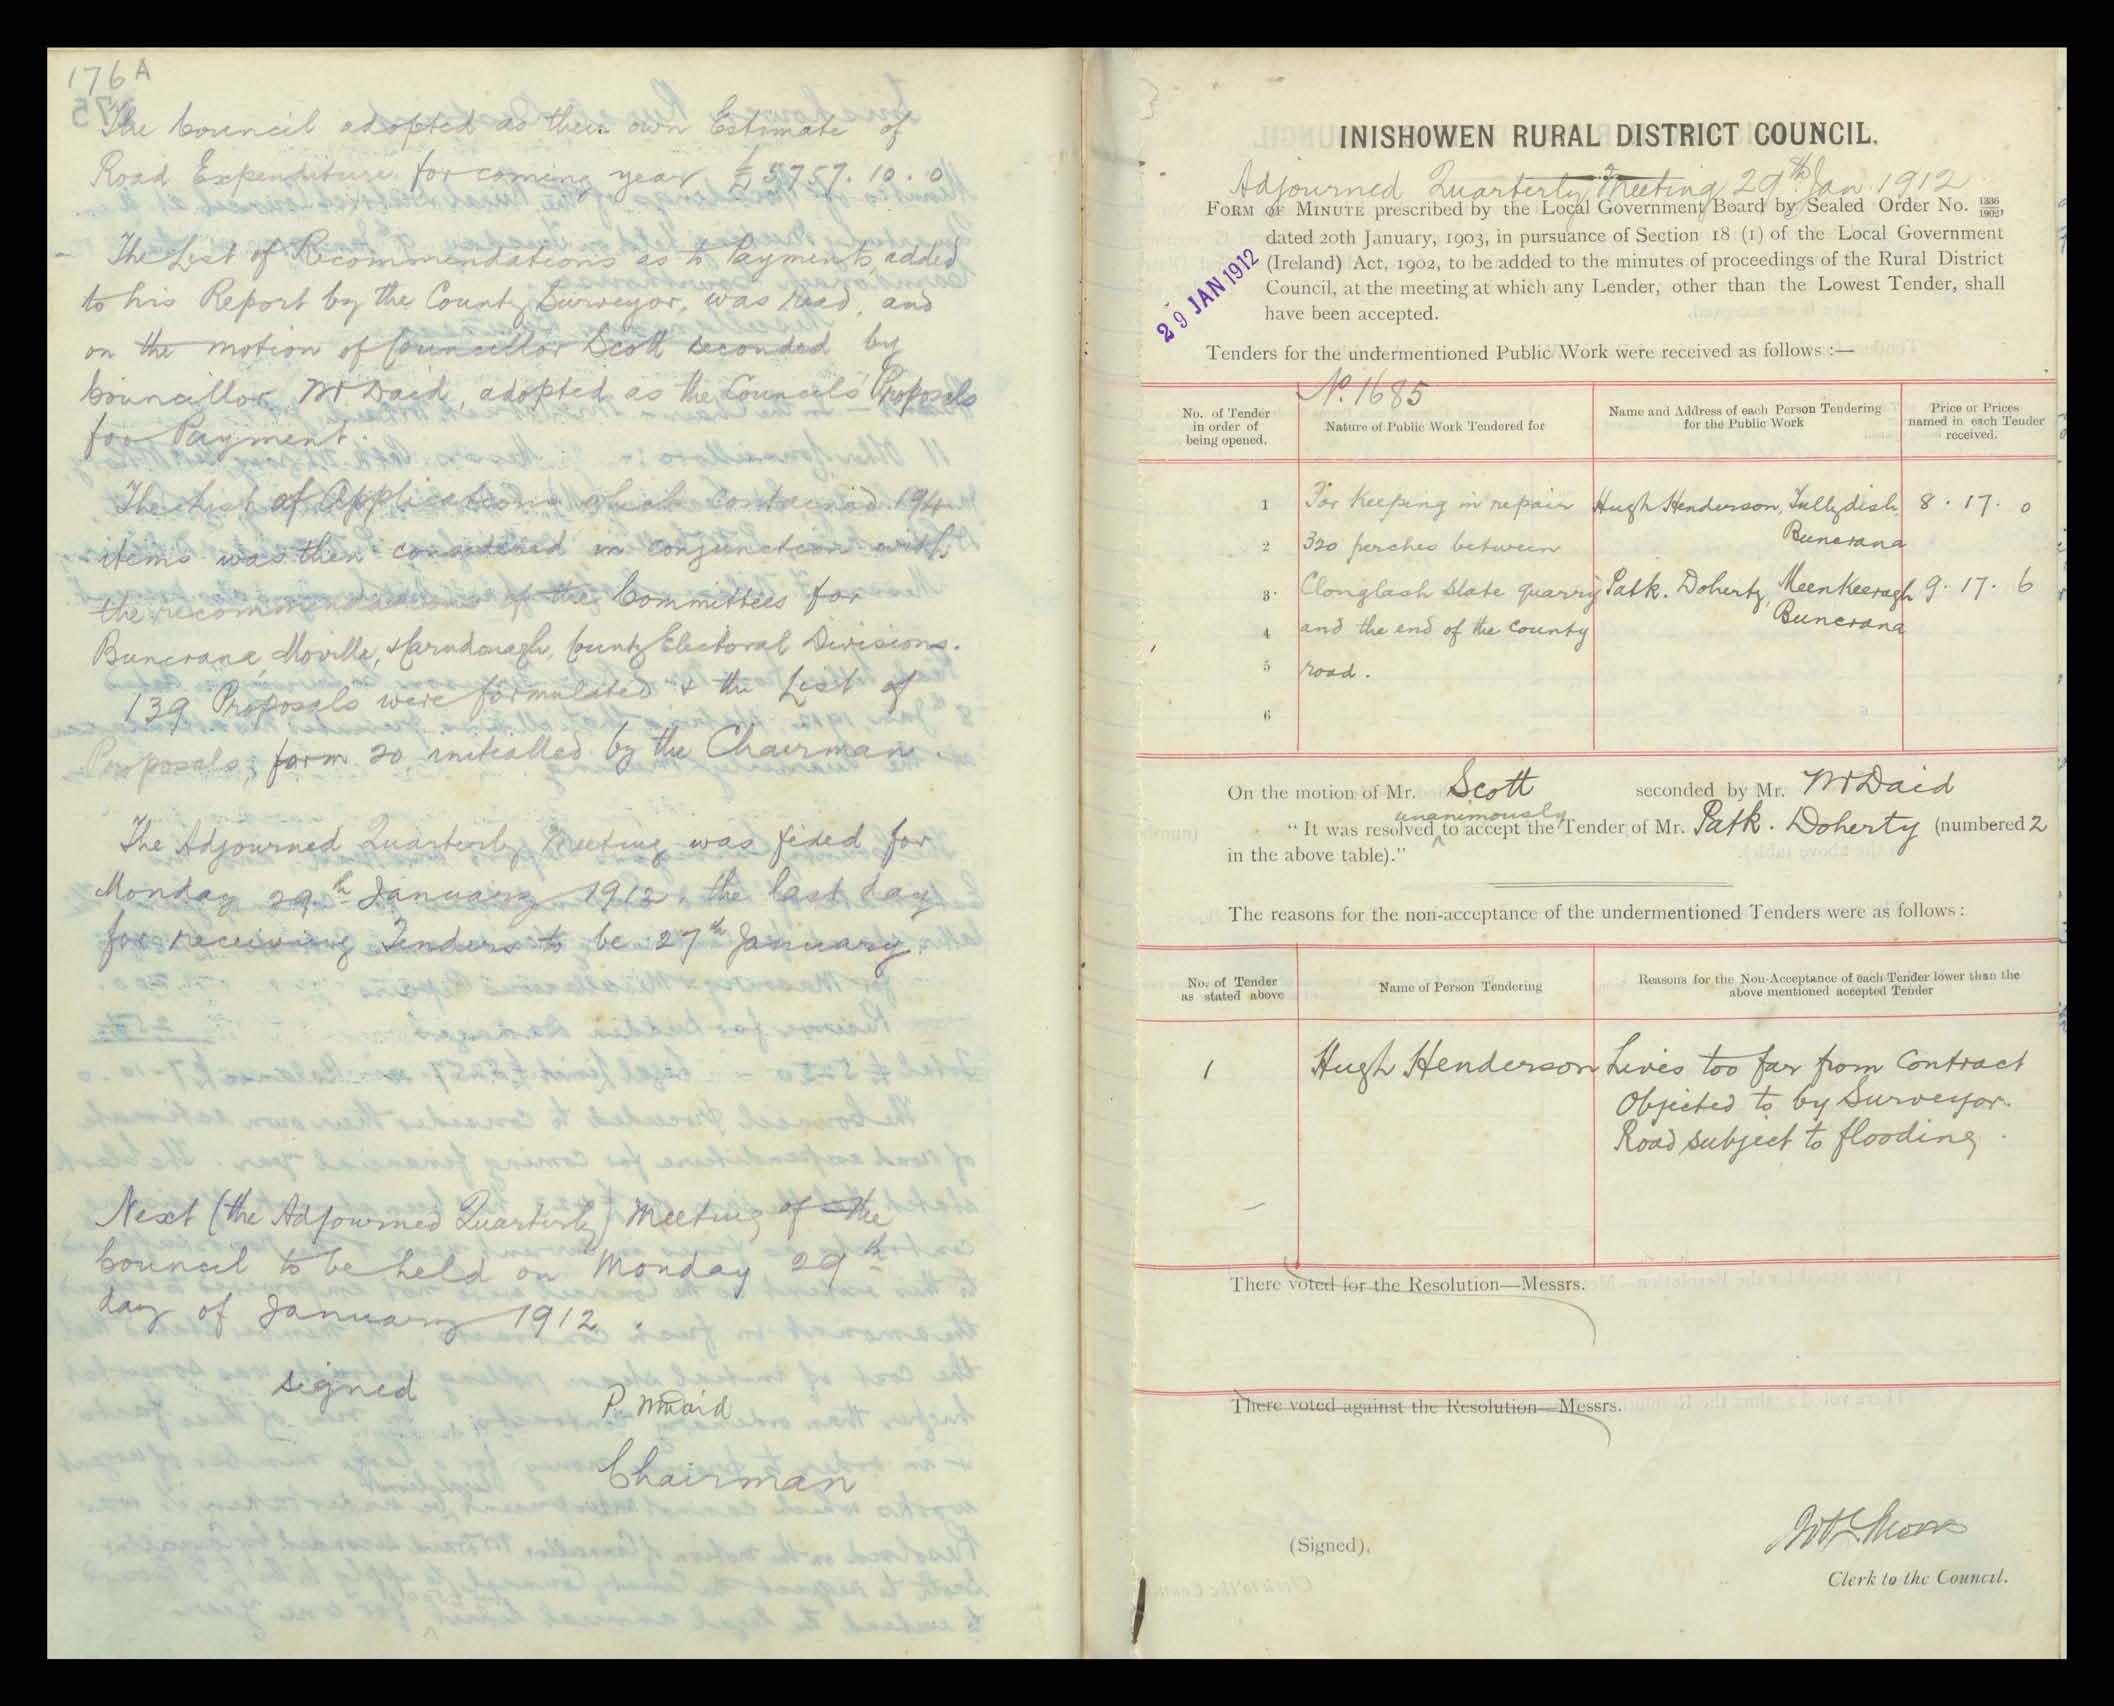 176A
The Council adopted as their own Estimate of
Road Expenditure for coming year £5757.10.0
The List of Recommendations as to Payments added
to his Report by the County Surveyor, was read, and
on the motion of Councillor Scott seconded by
Councillor McDaid, adopted as the Councils' Proposals
for Payment.
The List of Applications which contained 194
items was then considered in conjunction with
the recommendations of the Committees for
Buncrana, Moville, & Carndonagh, County Electoral Divisions.
139 Proposals were formulated & the List of
Proposals, form 20 initialled by the Chairman.
The Adjourned Quarterly Meeting was fixed for
Monday 29th January 1912, the last day
for receiving Tenders to be 27th January.
Next (the Adjourned Quarterly) Meeting of the
Council to be held on Monday 29th
day of January 1912.
signed P. McDaid
Chairman
INISHOWEN RURAL DISTRICT COUNCIL.
Adjourned Quarterly Meeting 29th Jan. 1912
FORM OF MINUTE prescribed by the Local Government Board by Sealed Order No. 1336/1902,
dated 20th January, 1903, in pursuance of Section 18 (1) of the Local Government
(Ireland) Act, 1902, to be added to the minutes of proceedings of the Rural District
Council, at the meeting at which any Lender, other than the Lowest Tender, shall
have been accepted.
29 JAN 1912
Tenders for the undermentioned Public Work were received as follows :—
No. 1685
No. of Tender in order of being opened. Nature of Public Work Tendered for Name and Address of each Person Tendering for the Public Work Price or Prices named in each Tender received.
1 For keeping in repair Hugh Henderson, Tullydish, 8 . 17 . 0
2 320 perches between Buncrana
3 Clonglash Slate quarry Patk. Doherty, Meenkeeragh 9 . 17 . 6
4 and the end of the county Buncrana
5 road.
6
On the motion of Mr. Scott seconded by Mr. McDaid
unanimously
"It was resolved ^ to accept the Tender of Mr. Patk. Doherty (numbered 2
in the above table)."
The reasons for the non-acceptance of the undermentioned Tenders were as follows :
No. of Tender as stated above Name of Person Tendering Reasons for the Non-Acceptance of each Tender lower than the above mentioned accepted Tender
1 Hugh Henderson Lives too far from Contract
Objected to by Surveyor.
Road subject to flooding.
There voted for the Resolution—Messrs.
There voted against the Resolution—Messrs.
(Signed),
Clerk to the Council.